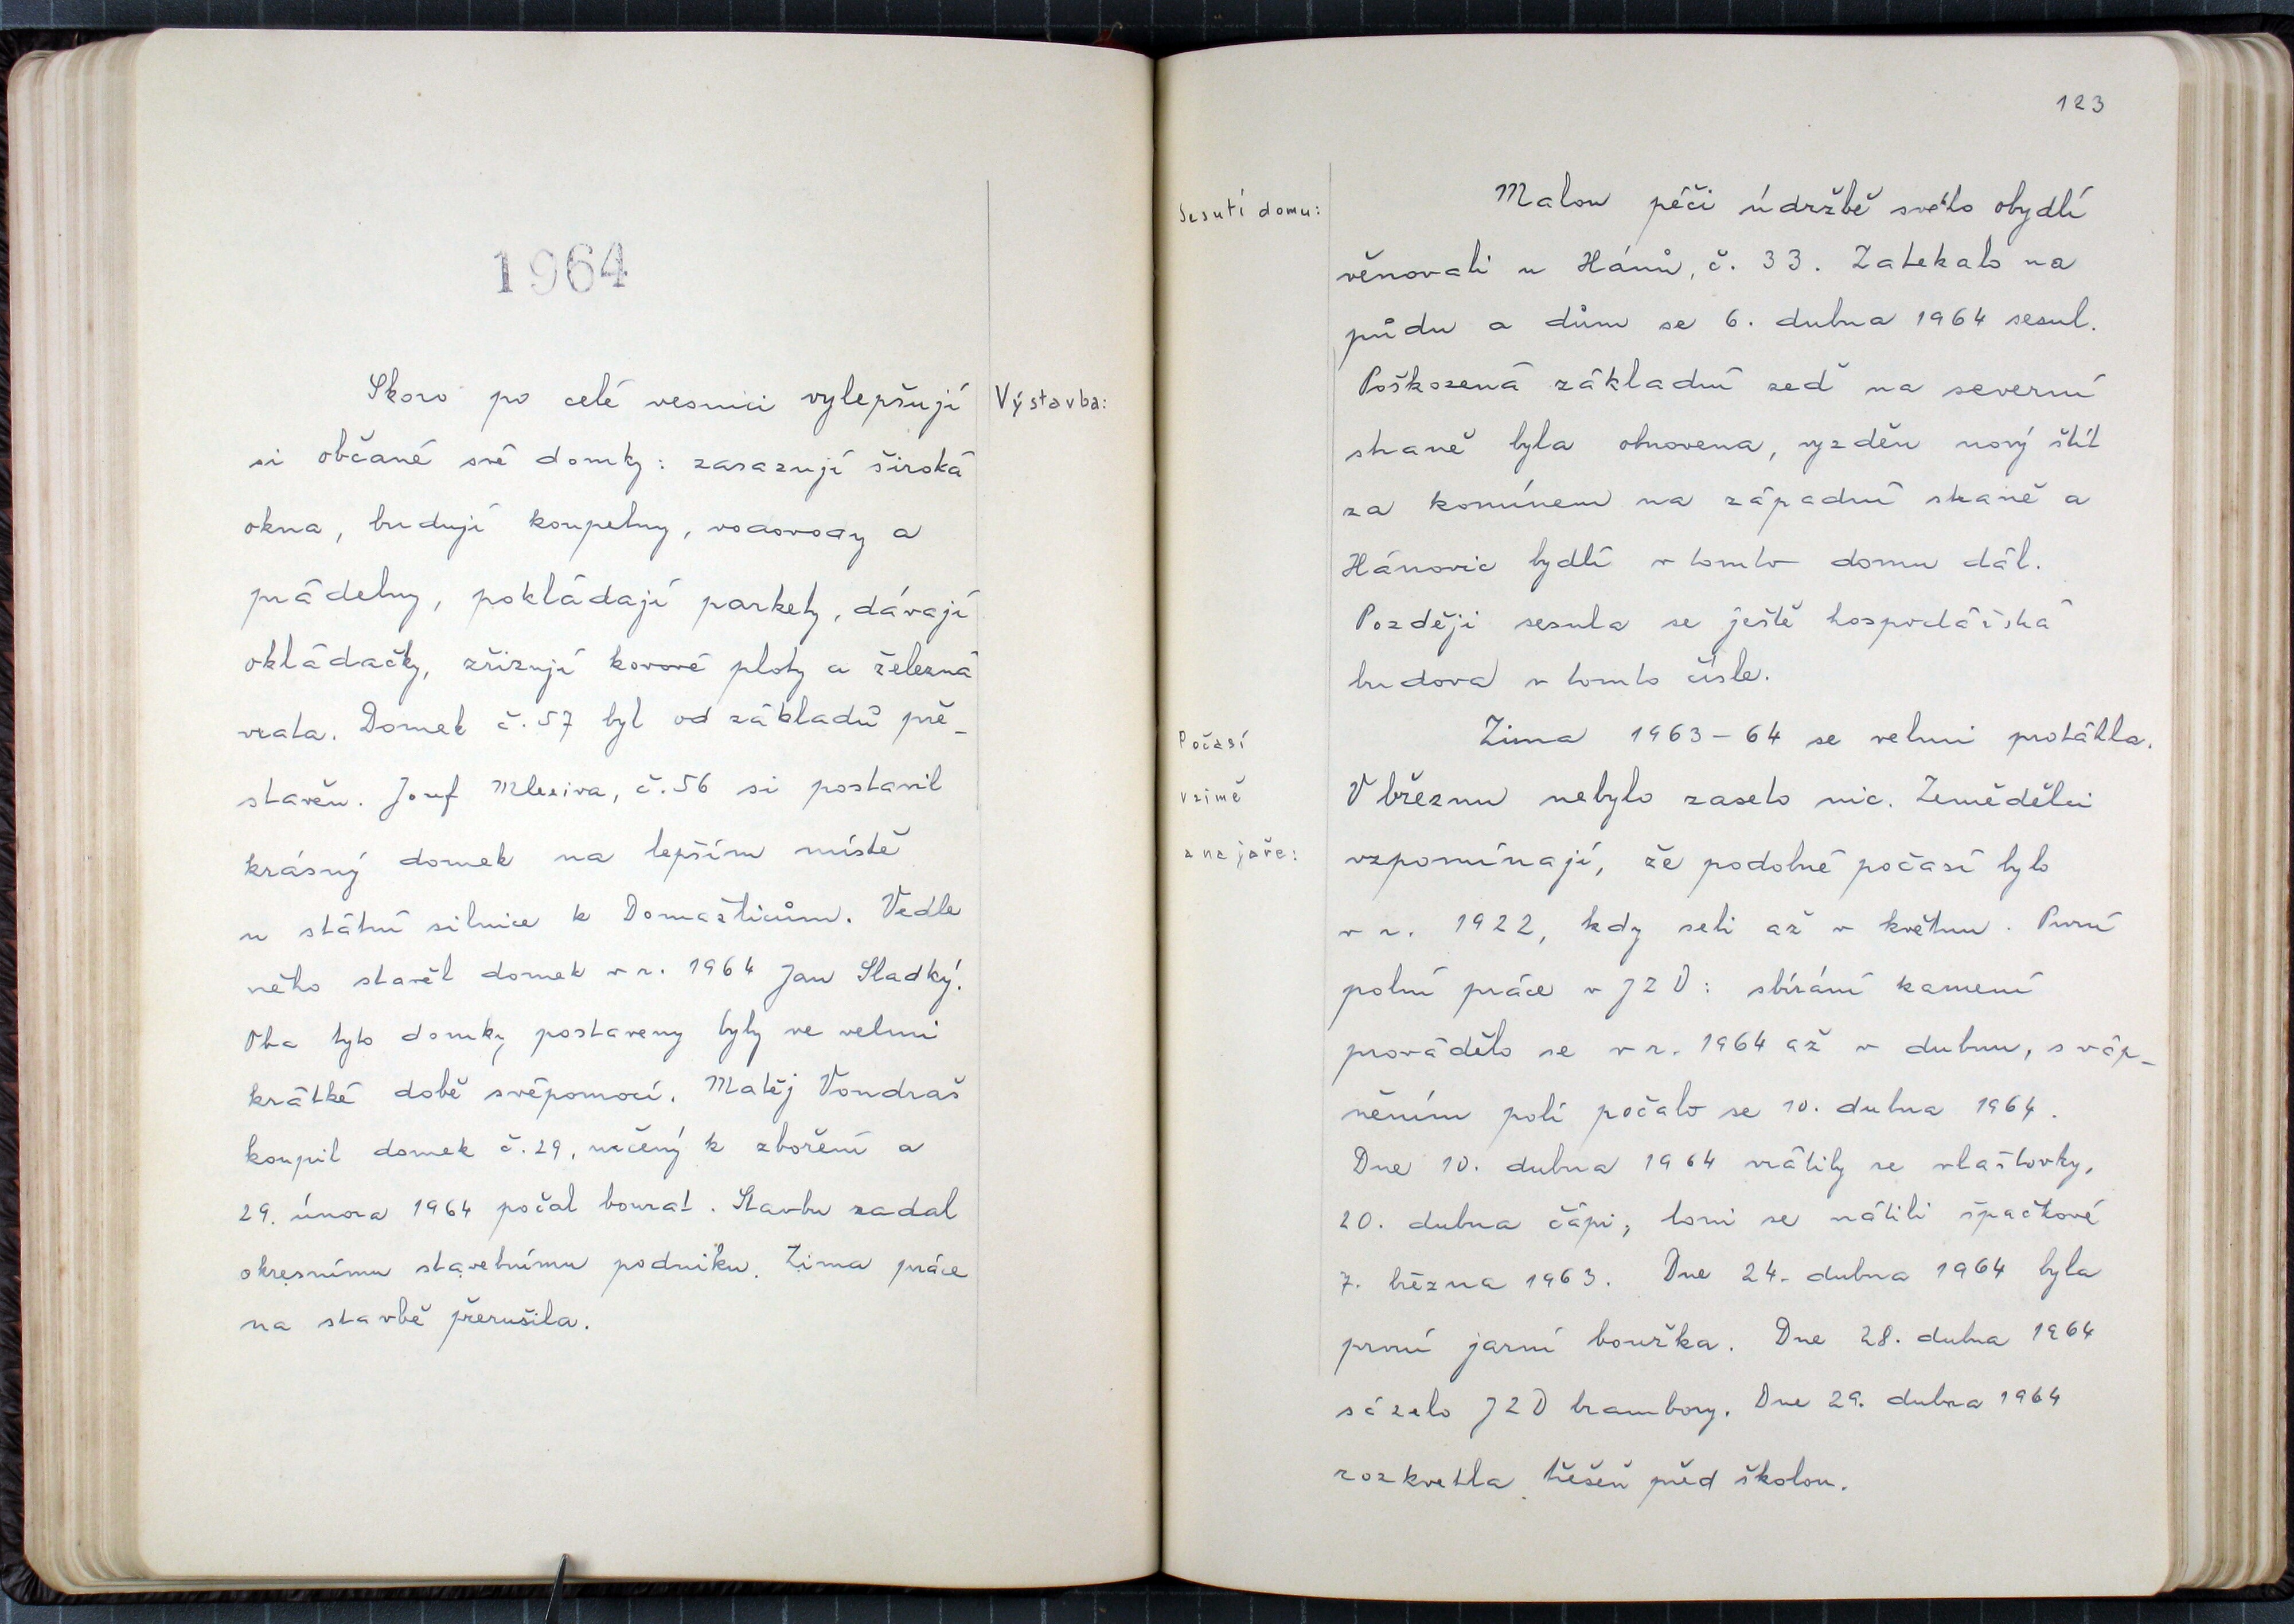 1964
Výstavba:
Skoro po celé vesnici vylepšují
si občané své domky: zasazují široká
okna, budují koupelny, vodovody a
prádelny, pokládají parkety, dávají
okládačky, zřizují kovové ploty a železná
vrata. Domek č. 57 byl od základů pře-
stavěn. Josef Mleziva, č. 56 si postavil
krásný domek na lepším místě
u státní silnice k Domažlicům. Vedle
něho stavěl domek v r. 1964 Jan Sladký.
Oba tyto domky postaveny byly ve velmi
krátké době svépomocí. Matěj Vondraš
koupil domek č. 29, určený k zboření a
29. února 1964 počal bourat. Stavbu zadal
okresnímu stavebnímu podniku. Zima práce
na stavbě přerušila.
123
Sesutí domu:
Malou péči údržbě svého obydlí
věnovali u Hánů, č. 33. Zatekalo na
půdu a dům se 6. dubna 1964 sesul.
Poškozená základní zeď na severní
straně byla obnovena, vyzděn nový štít
za komínem na západní straně a
Hánovic bydlí v tomto domu dál.
Později sesula se ještě hospodářská
budova v tomto čísle.
Počasí
v zimě
a na jaře:
Zima 1963-64 se velmi protáhla.
V březnu nebylo zaseto nic. Zemědělci
vzpomínají, že podobné počasí bylo
v r. 1922, kdy seli až v květnu. První
polní práce v JZD: sbírání kamení
provádělo se v r. 1964 až v dubnu, s váp-
něním polí počalo se 10. dubna 1964.
Dne 10. dubna 1964 vrátily se vlaštovky,
20. dubna čápi, loni se vrátili špačkové
7. března 1963. Dne 24. dubna 1964 byla
první jarní bouřka. Dne 28. dubna 1964
sázelo JZD brambory. Dne 29. dubna 1964
rozkvetla třešeň před školou.